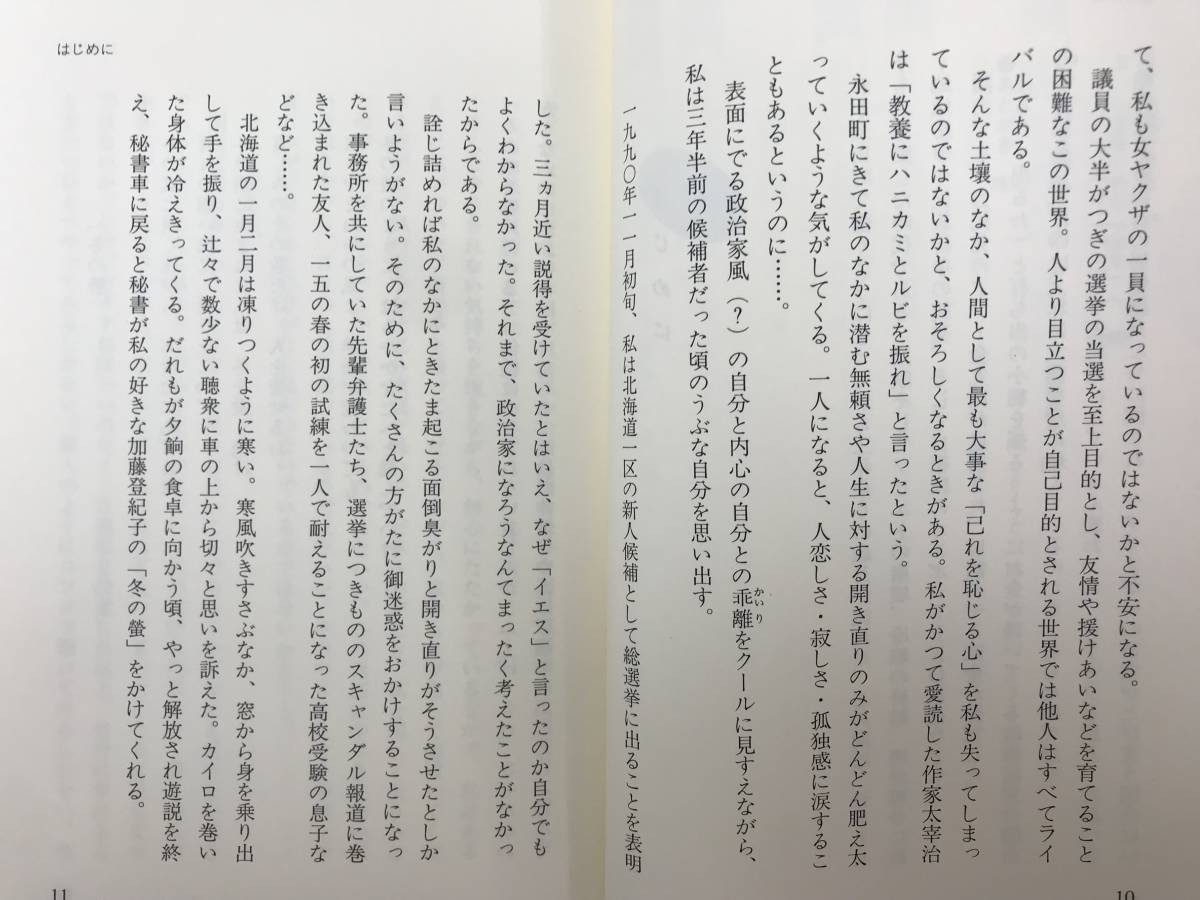 て、私も女ヤクザの一員になっているのではないかと不安になる。
議員の大半がつぎの選挙の当選を至上目的とし、友情や援けあいなどを育てること
の困難なこの世界。人より目立つことが自己目的とされる世界では他人はすべてライ
バルである。
そんな土壌のなか、人間として最も大事な「己れを恥じる心」を私も失ってしまっ
ているのではないかと、おそろしくなるときがある。私がかつて愛読した作家太宰治
は「教養にハニカミとルビを振れ」と言ったという。
永田町にきて私のなかに潜む無頼さや人生に対する開き直りのみがどんどん肥え太
っていくような気がしてくる。一人になると、人恋しさ・寂しさ・孤独感に涙するこ
ともあるというのに……。
表面にでる政治家風（？）の自分と内心の自分との乖離をクールに見すえながら、
かいり
私は三年半前の候補者だった頃のうぶな自分を思い出す。
一九九〇年一一月初旬、私は北海道一区の新人候補として総選挙に出ることを表明
10
はじめに
した。三ヵ月近い説得を受けていたとはいえ、なぜ「イエス」と言ったのか自分でも
よくわからなかった。それまで、政治家になろうなんてまったく考えたことがなかっ
たからである。
詮じ詰めれば私のなかにときたま起こる面倒臭がりと開き直りがそうさせたとしか
言いようがない。そのために、たくさんの方がたに御迷惑をおかけすることになっ
た。事務所を共にしていた先輩弁護士たち、選挙につきもののスキャンダル報道に巻
き込まれた友人、一五の春の初の試練を一人で耐えることになった高校受験の息子な
どなど……。
北海道の一月二月は凍りつくように寒い。寒風吹きすさぶなか、窓から身を乗り出
して手を振り、辻々で数少ない聴衆に車の上から切々と思いを訴えた。カイロを巻い
た身体が冷えきってくる。だれもが夕餉の食卓に向かう頃、やっと解放され遊説を終
え、秘書車に戻ると秘書が私の好きな加藤登紀子の「冬の螢」をかけてくれる。
11